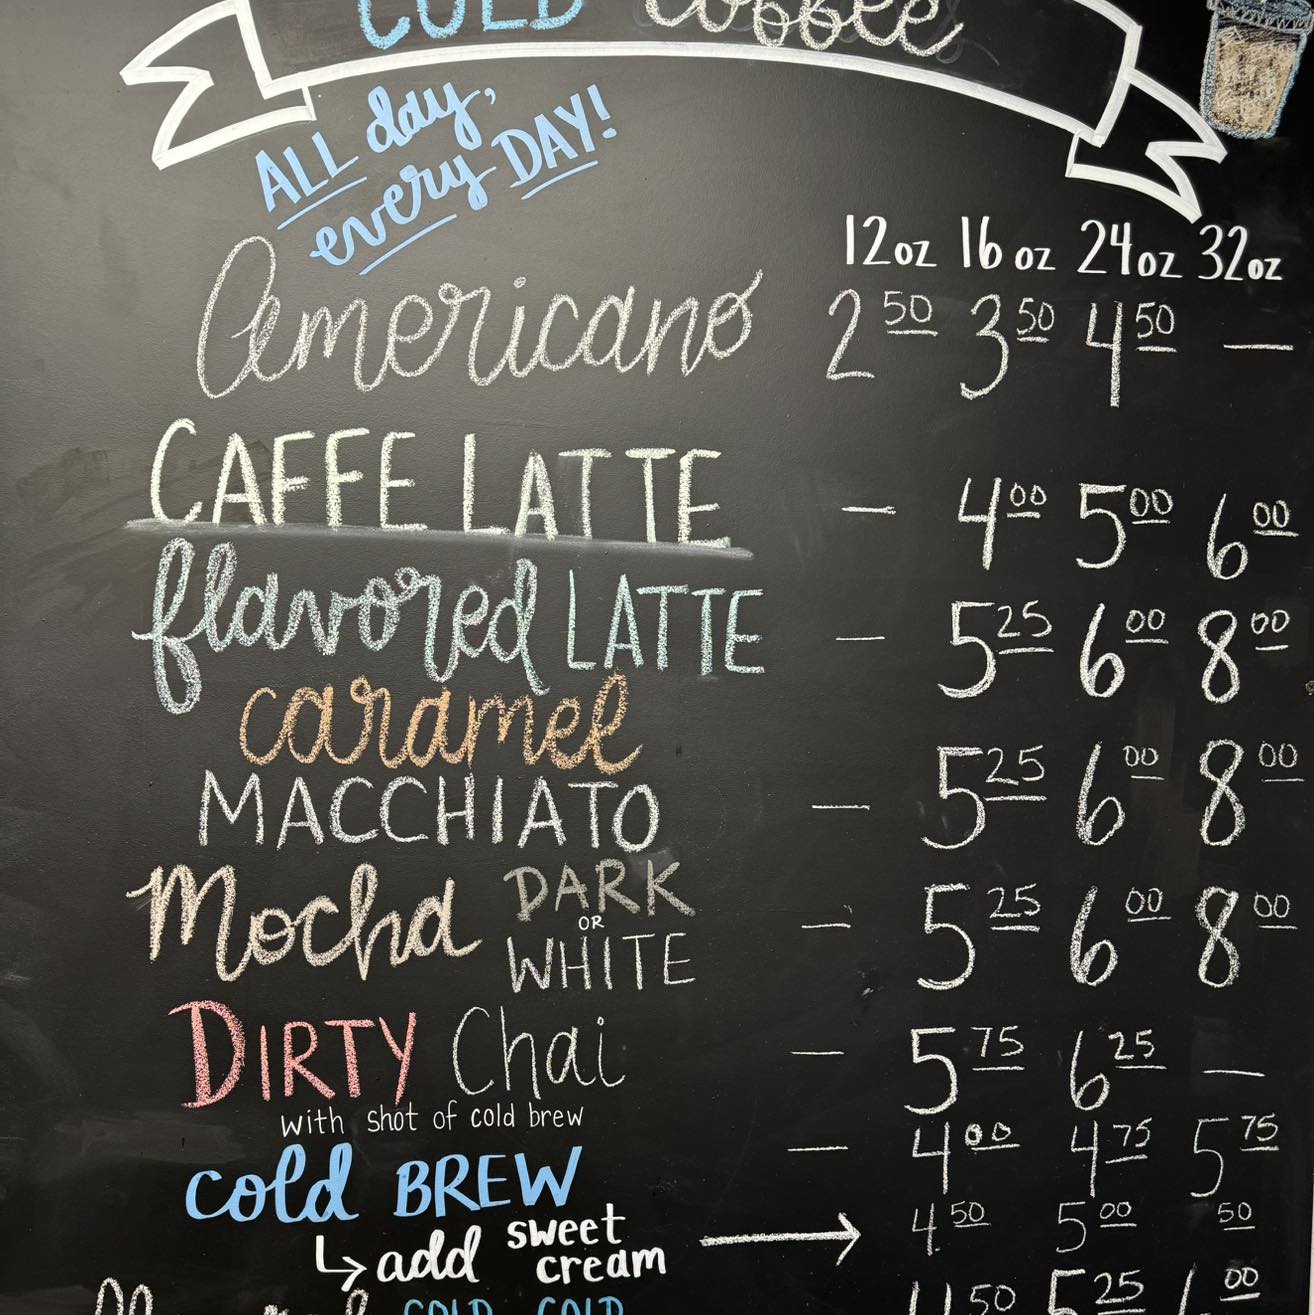 COLD Coffee
ALL day,
every DAY!
12oz 16 oz 24oz 32oz
Americano 2 50 3 50 4 50 —
CAFFE LATTE — 4 00 5 00 6 00
flavored LATTE — 5 25 6 00 8 00
caramel
MACCHIATO — 5 25 6 00 8 00
Mocha DARK OR WHITE — 5 25 6 00 8 00
DIRTY Chai — 5 75 6 25 —
with shot of cold brew
cold BREW — 4 00 4 75 5 75
add sweet cream 4 50 5 00 50
COLD COLD 4 50 5 25 00